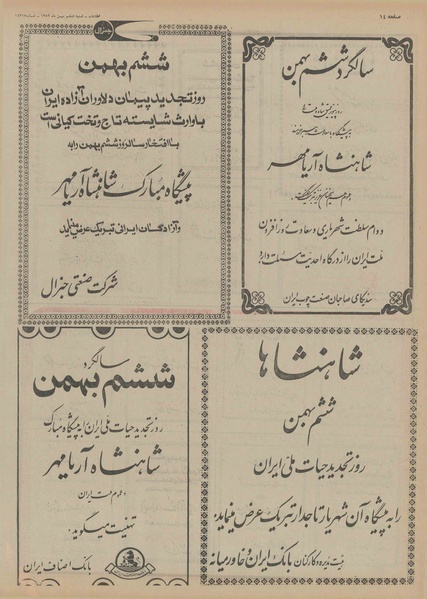 صفحه ١٤
سالگرد ششم بهمن
شاهنشاه آریامهر
و دوام سلطنت شهریاری و سعادت روزافزون
ملت ایران را از درگاه احدیت مسئلت دارد
سندیکای صاحبان صنعت چوب ایران
جنرال
ششم بهمن
روز تجدید پیمان دلاوران آزاده ایران
با وارث شایسته تاج و تخت کیانی است
با افتخار سالروز ششم بهمن را به
پیشگاه مبارک شاهنشاه آریامهر
و آزادگان ایرانی تبریک عرض مینماید
شرکت صنعتی جنرال
شاهنشاها
ششم بهمن
روز تجدید حیات ملی ایران
را به پیشگاه آن شهریار تاجدار تبریک عرض مینماید
هیئت مدیره و کارکنان بانک ایران و خاورمیانه
سالگرد
ششم بهمن
روز تجدید حیات ملی ایران را به پیشگاه مبارک
شاهنشاه آریامهر
و عموم
تهنیت میگوید
بانک اصناف ایران